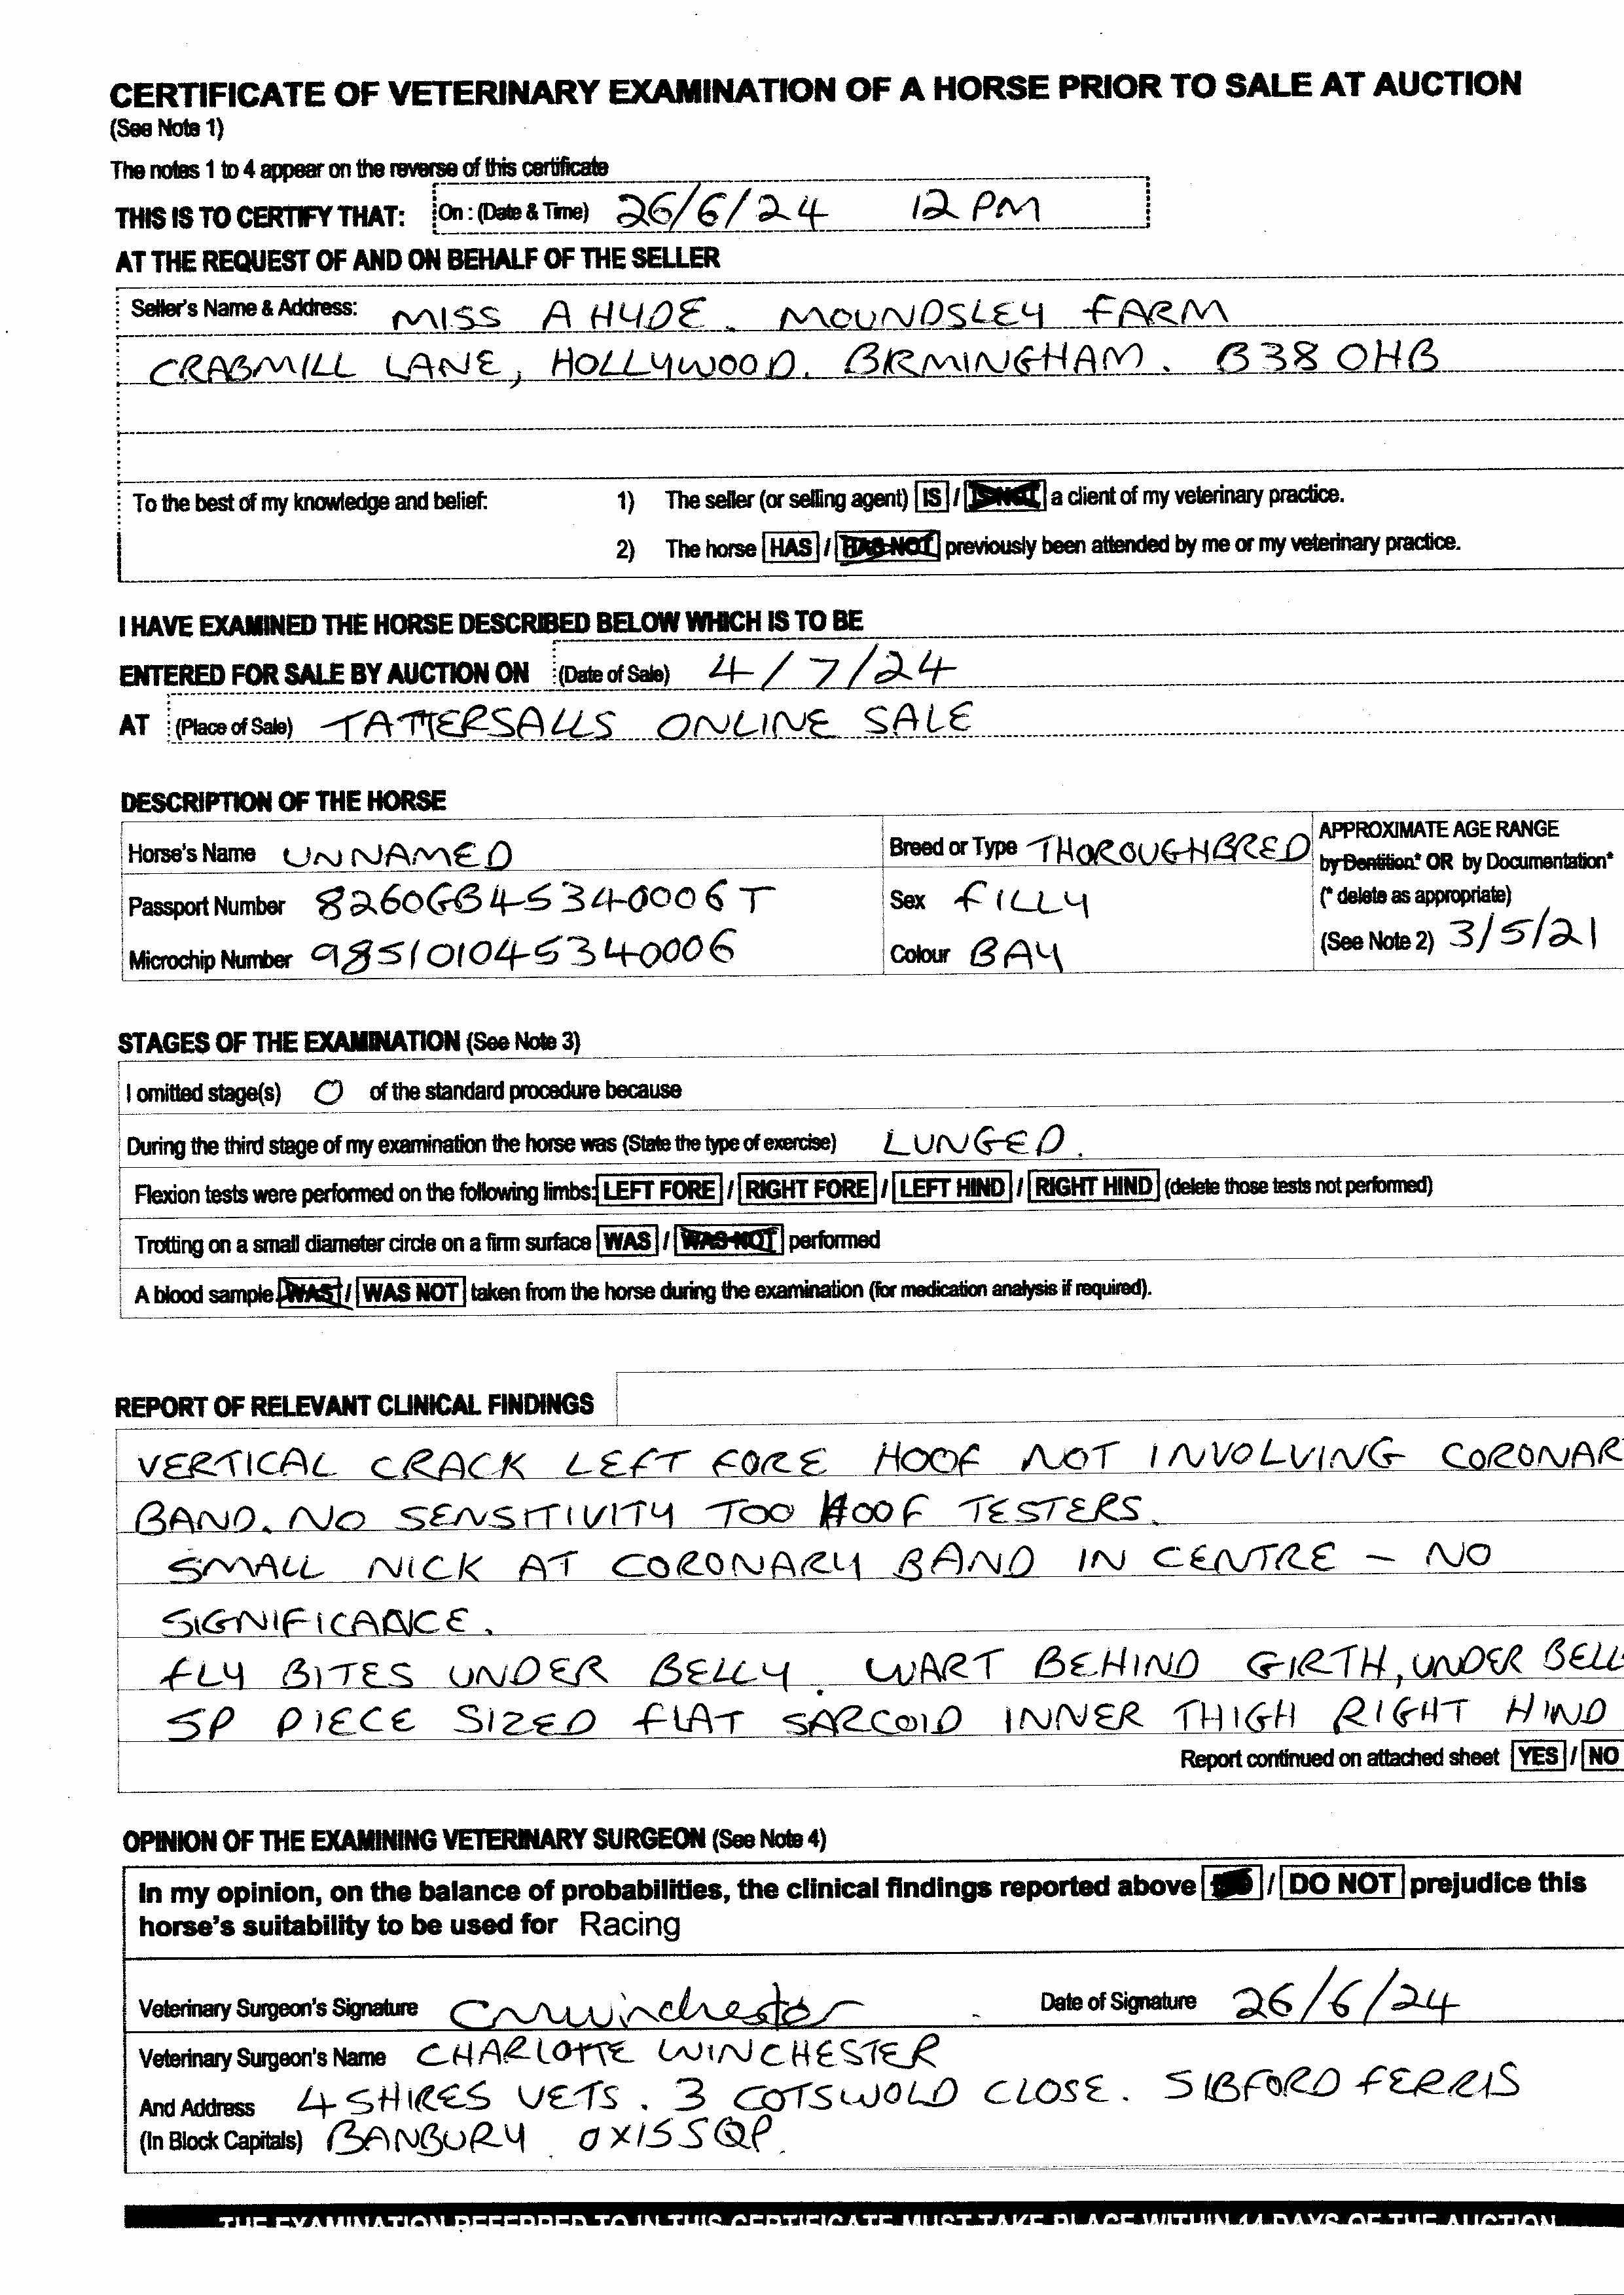 CERTIFICATE OF VETERINARY EXAMINATION OF A HORSE PRIOR TO SALE AT AUCTION
(See Note 1)
The notes 1 to 4 appear on the reverse of this certificate
THIS IS TO CERTIFY THAT: On : (Date & Time) 26/6/24 12 PM
AT THE REQUEST OF AND ON BEHALF OF THE SELLER
Seller's Name & Address: MISS A HYDE. MOUNDSLEY FARM
CRABMILL LANE, HOLLYWOOD. BIRMINGHAM. B38 0HB
To the best of my knowledge and belief: 1) The seller (or selling agent) IS / IS NOT a client of my veterinary practice.
2) The horse HAS / HAS NOT previously been attended by me or my veterinary practice.
I HAVE EXAMINED THE HORSE DESCRIBED BELOW WHICH IS TO BE
ENTERED FOR SALE BY AUCTION ON (Date of Sale) 4/7/24
AT (Place of Sale) TATTERSALLS ONLINE SALE
DESCRIPTION OF THE HORSE
Horse's Name UNNAMED Breed or Type THOROUGHBRED APPROXIMATE AGE RANGE
by Dentition* OR by Documentation*
Passport Number 8260GB45340006T Sex FILLY (* delete as appropriate)
Microchip Number 985101045340006 Colour BAY (See Note 2) 3/5/21
STAGES OF THE EXAMINATION (See Note 3)
I omitted stage(s) 0 of the standard procedure because
During the third stage of my examination the horse was (State the type of exercise) LUNGED.
Flexion tests were performed on the following limbs: LEFT FORE / RIGHT FORE / LEFT HIND / RIGHT HIND (delete those tests not performed)
Trotting on a small diameter circle on a firm surface WAS / WAS NOT performed
A blood sample WAS / WAS NOT taken from the horse during the examination (for medication analysis if required).
REPORT OF RELEVANT CLINICAL FINDINGS
VERTICAL CRACK LEFT FORE HOOF NOT INVOLVING CORONAR
BAND. NO SENSITIVITY TOO HOOF TESTERS.
SMALL NICK AT CORONARY BAND IN CENTRE - NO
SIGNIFICANCE.
FLY BITES UNDER BELLY. WART BEHIND GIRTH, UNDER BELL
5P PIECE SIZED FLAT SARCOID INNER THIGH RIGHT HIND
Report continued on attached sheet YES / NO
OPINION OF THE EXAMINING VETERINARY SURGEON (See Note 4)
In my opinion, on the balance of probabilities, the clinical findings reported above / DO NOT prejudice this
horse's suitability to be used for Racing
Veterinary Surgeon's Signature CMWinchester Date of Signature 26/6/24
Veterinary Surgeon's Name CHARLOTTE WINCHESTER
And Address 4 SHIRES VETS. 3 COTSWOLD CLOSE. SIBFORD FERRIS
(In Block Capitals) BANBURY. OX15 5QP.
THE EXAMINATION REFERRED TO IN THIS CERTIFICATE MUST TAKE PLACE WITHIN 14 DAYS OF THE AUCTION